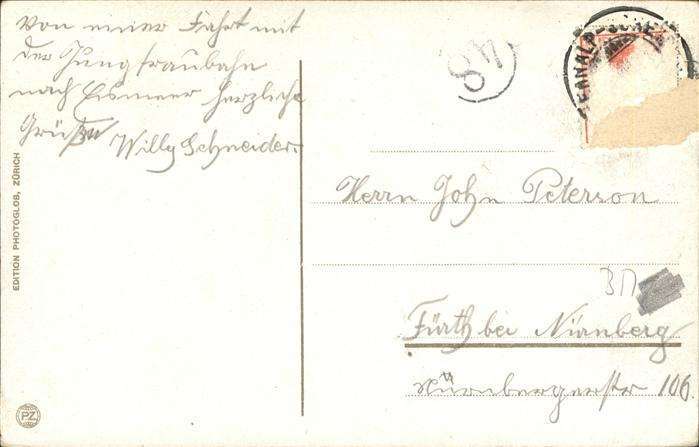 Von einer Fahrt mit
der Jungfraubahn
nach Eismeer herzliche
Grüße
Willy Schneider.
EDITION PHOTOGLOB, ZÜRICH
PZ
48
Herrn John Peterson
Fürth bei Nürnberg
Nürnbergerstr 106.